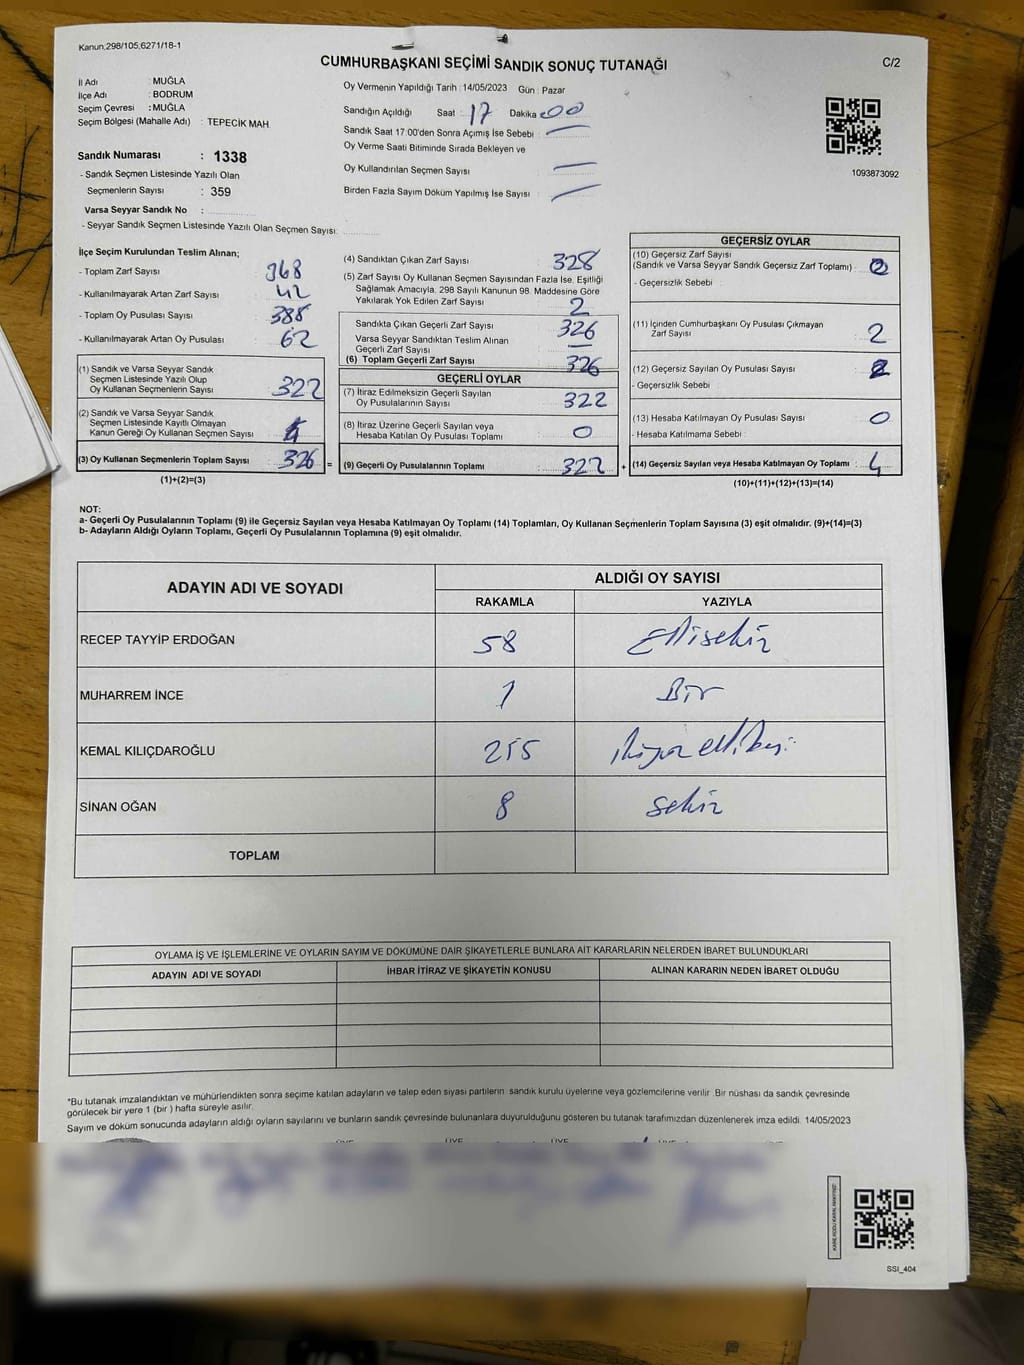 Kanun;298/105,6271/18-1
CUMHURBAŞKANI SEÇİMİ SANDIK SONUÇ TUTANAĞI
C/2
İl Adı : MUĞLA
İlçe Adı : BODRUM
Seçim Çevresi : MUĞLA
Seçim Bölgesi (Mahalle Adı) : TEPECİK MAH.
Oy Vermenin Yapıldığı Tarih : 14/05/2023 Gün : Pazar
Sandığın Açıldığı Saat : 17 Dakika : 00
Sandık Saat 17:00'den Sonra Açımış İse Sebebi : —
Oy Verme Saati Bitiminde Sırada Bekleyen ve
Oy Kullandırılan Seçmen Sayısı : —
Birden Fazla Sayım Döküm Yapılmış İse Sayısı : —
1093873092
Sandık Numarası : 1338
- Sandık Seçmen Listesinde Yazılı Olan
Seçmenlerin Sayısı : 359
Varsa Seyyar Sandık No :
- Seyyar Sandık Seçmen Listesinde Yazılı Olan Seçmen Sayısı:
İlçe Seçim Kurulundan Teslim Alınan;
- Toplam Zarf Sayısı : 368
- Kullanılmayarak Artan Zarf Sayısı : 42
- Toplam Oy Pusulası Sayısı : 388
- Kullanılmayarak Artan Oy Pusulası : 62
(1) Sandık ve Varsa Seyyar Sandık
Seçmen Listesinde Yazılı Olup
Oy Kullanan Seçmenlerin Sayısı : 322
(2) Sandık ve Varsa Seyyar Sandık
Seçmen Listesinde Kayıtlı Olmayan
Kanun Gereği Oy Kullanan Seçmen Sayısı : 4
(3) Oy Kullanan Seçmenlerin Toplam Sayısı : 326 =
(1)+(2)=(3)
(4) Sandıktan Çıkan Zarf Sayısı : 328
(5) Zarf Sayısı Oy Kullanan Seçmen Sayısından Fazla İse, Eşitliği
Sağlamak Amacıyla, 298 Sayılı Kanunun 98. Maddesine Göre
Yakılarak Yok Edilen Zarf Sayısı : 2
Sandıkta Çıkan Geçerli Zarf Sayısı : 326
Varsa Seyyar Sandıktan Teslim Alınan
Geçerli Zarf Sayısı : —
(6) Toplam Geçerli Zarf Sayısı : 326
GEÇERLİ OYLAR
(7) İtiraz Edilmeksizin Geçerli Sayılan
Oy Pusulalarının Sayısı : 322
(8) İtiraz Üzerine Geçerli Sayılan veya
Hesaba Katılan Oy Pusulası Toplamı : 0
(9) Geçerli Oy Pusulalarının Toplamı : 322 +
GEÇERSİZ OYLAR
(10) Geçersiz Zarf Sayısı
(Sandık ve Varsa Seyyar Sandık Geçersiz Zarf Toplamı) :
- Geçersizlik Sebebi :
(11) İçinden Cumhurbaşkanı Oy Pusulası Çıkmayan
Zarf Sayısı : 2
(12) Geçersiz Sayılan Oy Pusulası Sayısı : 2
- Geçersizlik Sebebi :
(13) Hesaba Katılmayan Oy Pusulası Sayısı : 0
- Hesaba Katılmama Sebebi :
(14) Geçersiz Sayılan veya Hesaba Katılmayan Oy Toplamı : 4
(10)+(11)+(12)+(13)=(14)
NOT:
a- Geçerli Oy Pusulalarının Toplamı (9) ile Geçersiz Sayılan veya Hesaba Katılmayan Oy Toplamı (14) Toplamları, Oy Kullanan Seçmenlerin Toplam Sayısına (3) eşit olmalıdır. (9)+(14)=(3)
b- Adayların Aldığı Oyların Toplamı, Geçerli Oy Pusulalarının Toplamına (9) eşit olmalıdır.
ADAYIN ADI VE SOYADI ALDIĞI OY SAYISI
RAKAMLA YAZIYLA
RECEP TAYYİP ERDOĞAN 58 Ellisekiz
MUHARREM İNCE 1 Bir
KEMAL KILIÇDAROĞLU 255 ikiyüz elli beş
SİNAN OĞAN 8 sekiz
TOPLAM
OYLAMA İŞ VE İŞLEMLERİNE VE OYLARIN SAYIM VE DÖKÜMÜNE DAİR ŞİKAYETLERLE BUNLARA AİT KARARLARIN NELERDEN İBARET BULUNDUKLARI
ADAYIN ADI VE SOYADI İHBAR İTİRAZ VE ŞİKAYETİN KONUSU ALINAN KARARIN NEDEN İBARET OLDUĞU
*Bu tutanak imzalandıktan ve mühürlendikten sonra seçime katılan adayların ve talep eden siyasi partilerin sandık kurulu üyelerine veya gözlemcilerine verilir. Bir nüshası da sandık çevresinde
görülecek bir yere 1 (bir ) hafta süreyle asılır.
Sayım ve döküm sonucunda adayların aldığı oyların sayılarını ve bunların sandık çevresinde bulunanlara duyurulduğunu gösteren bu tutanak tarafımızdan düzenlenerek imza edildi. 14/05/2023
ÜYE ÜYE ÜYE ÜYE ÜYE
SSİ_404